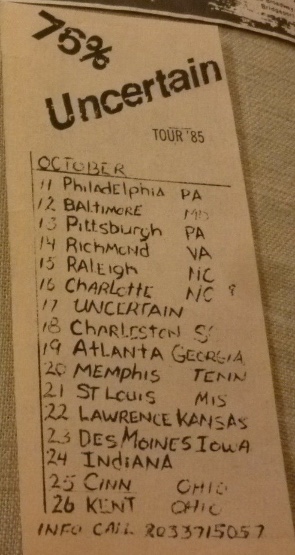 75%
Uncertain
TOUR '85
OCTOBER
11 PHILADELPHIA PA
12 BALTIMORE MD
13 PITTSBURGH PA
14 RICHMOND VA
15 RALEIGH NC
16 CHARLOTTE N/C ?
17 UNCERTAIN
18 CHARLESTON SC
19 ATLANTA GEORGIA
20 MEMPHIS TENN
21 ST LOUIS MIS
22 LAWRENCE KANSAS
23 DES MOINES IOWA
24 INDIANA
25 CINN OHIO
26 KENT OHIO
INFO CALL 2033715057